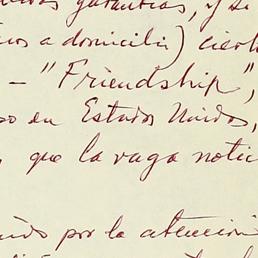 garantías, y si
a domicilio) cierto
— "Friendship",
en Estados Unidos,
que la vaga notic
por la atención